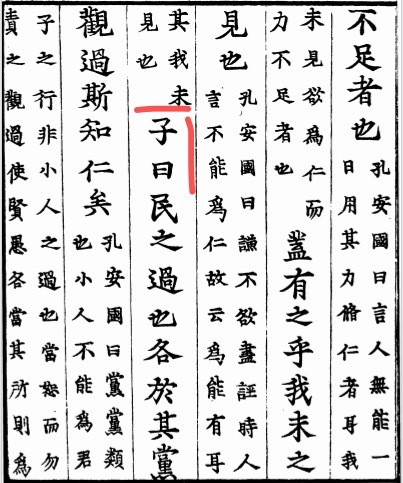 不足者也
孔安國曰言人無能一
日用其力脩仁者耳我
未見欲為仁而
力不足者也
蓋有之乎我未之
見也
孔安國曰謙不欲盡誣時人
言不能為仁故云為能有耳
其我未
見也
子曰民之過也各於其黨
觀過斯知仁矣
孔安國曰黨黨類
也小人不能為君
子之行非小人之過也當恕而勿
責之觀過使賢愚各當其所則為